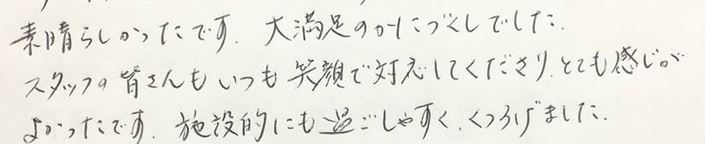 素晴らしかったです. 大満足のかにづくしでした.
スタッフの皆さんもいつも笑顔で対応してくださり、とても感じが
よかったです. 施設的にも過ごしやすく、くつろげました.